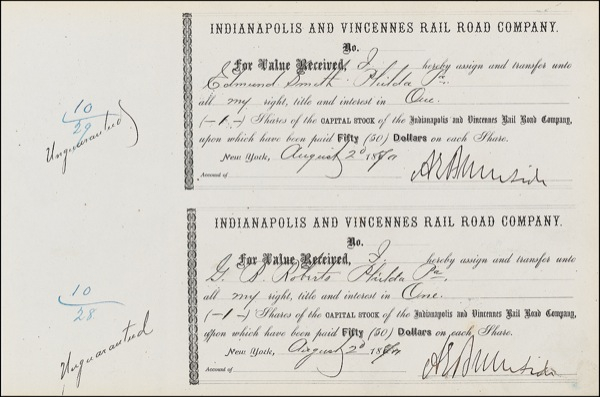 INDIANAPOLIS AND VINCENNES RAIL ROAD COMPANY.
No.
For Value Received, I hereby assign and transfer unto
Edmund Smith Philda Pa.
all my right, title and interest in One
(—1—) Shares of the CAPITAL STOCK of the Indianapolis and Vincennes Rail Road Company,
upon which have been paid Fifty (50) Dollars on each Share.
New York, August 2d 18
Account of
A E Burnside
10
29
Unguaranteed
INDIANAPOLIS AND VINCENNES RAIL ROAD COMPANY.
No.
For Value Received, I hereby assign and transfer unto
G. B. Roberts Philda Pa.
all my right, title and interest in One
(—1—) Shares of the CAPITAL STOCK of the Indianapolis and Vincennes Rail Road Company,
upon which have been paid Fifty (50) Dollars on each Share.
New York, August 2d 18
Account of
A E Burnside
10
28
Unguaranteed